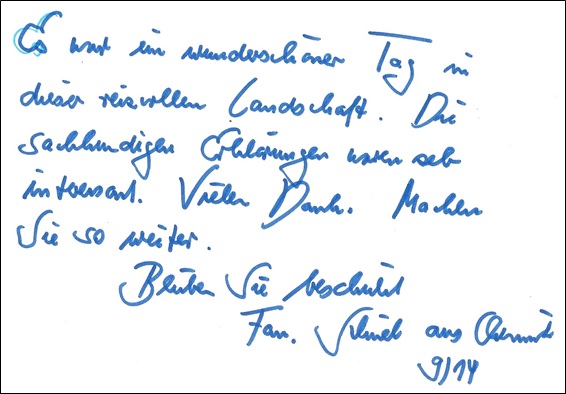 Es war ein wunderschöner Tag in
dieser reizvollen Landschaft. Die
sachkundigen Erklärungen waren sehr
interessant. Vielen Dank. Machen
Sie so weiter.
Bleiben Sie beschützt
Fam. aus Chemnitz
9/14